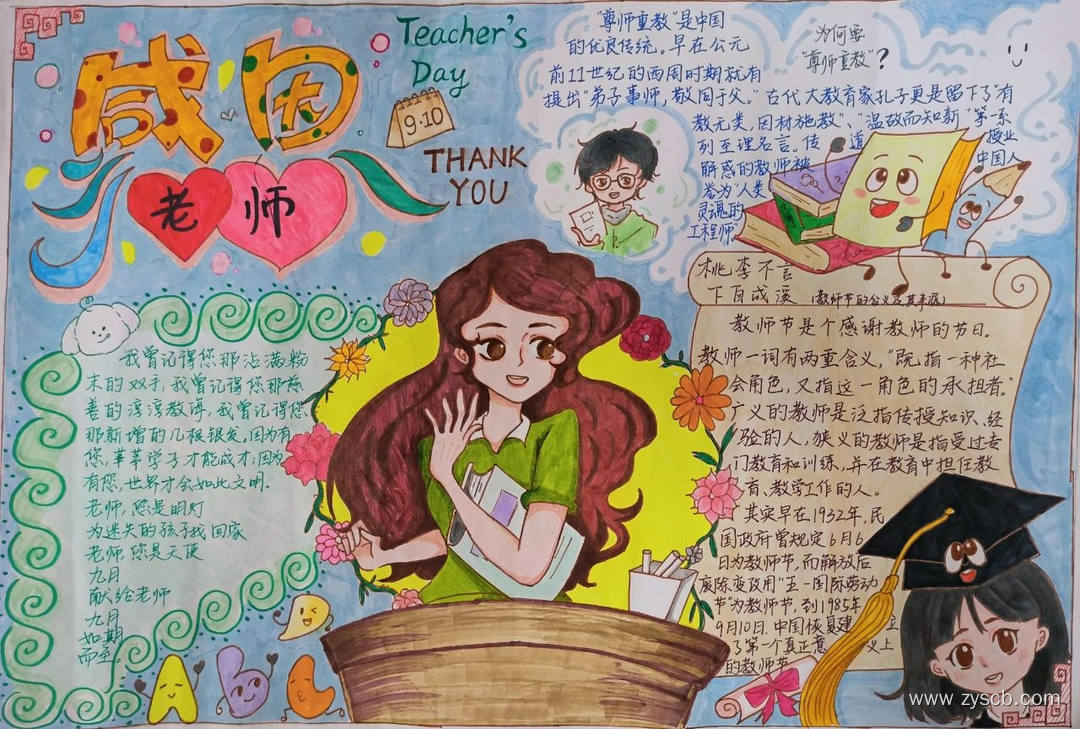 感恩
老师
Teacher's
Day
9.10
THANK
YOU
"尊师重教"是中国
的优良传统。早在公元
前11世纪的西周时期就有
提出"弟子事师,敬同于父。"古代大教育家孔子更是留下了"有
教无类,因材施教"、"温故而知新"等一系
列至理名言。传道授业
解惑的教师被中国人
誉为"人类
灵魂的
工程师"
为何要
"尊师重教"?
桃李不言
下自成溪
(教师节的含义及其来源)
教师节是个感谢教师的节日。
教师一词有两重含义,"既指一种社
会角色,又指这一角色的承担者"
广义的教师是泛指传授知识、经
验的人,狭义的教师是指受过专
门教育和训练,并在教育中担任教
育、教学工作的人。
其实早在1932年,民
国政府曾规定6月6
日为教师节,而解放后
废除变及用"五一国际劳动
节"为教师节,到1985年
9月10日.中国恢复建立
了第一个真正意义上
的教师节
我曾记得您那沾满粉
末的双手,我曾记得您那慈
善的淳淳教诲,我曾记得您
那新增的几根银发,因为有
您,莘莘学子才能成才;因为
有您,世界才会如此文明。
老师,您是明灯
为迷失的孩子找回家
老师您是天使
九月
献给老师
九月
如期
而至
A b c
www.zyscb.com